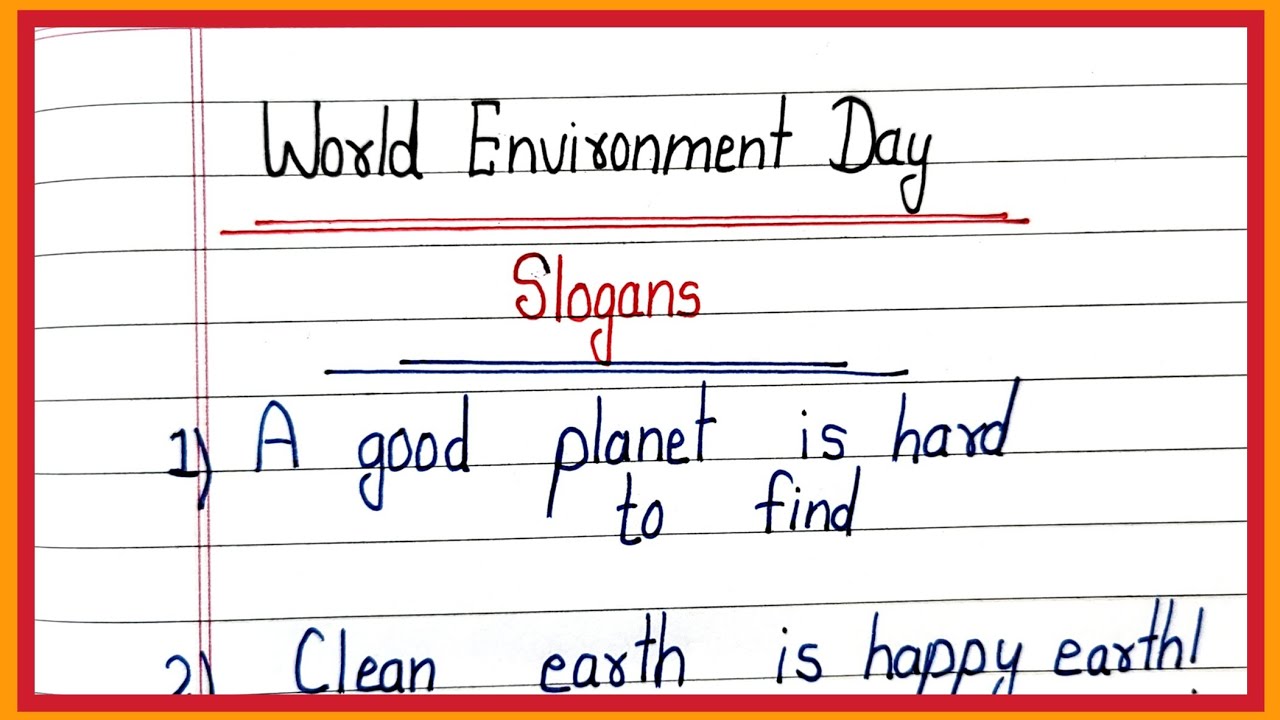 World Environment Day
Slogans
1) A good planet is hard
to find
2) Clean earth is happy earth!